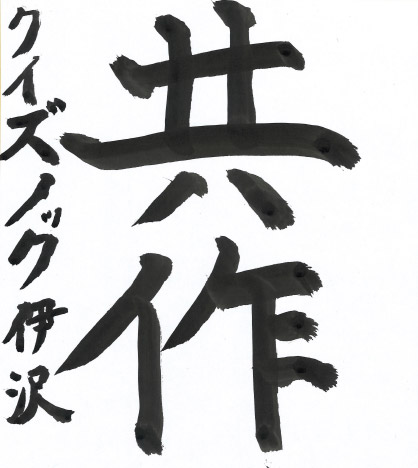 共作
クイズノック伊沢